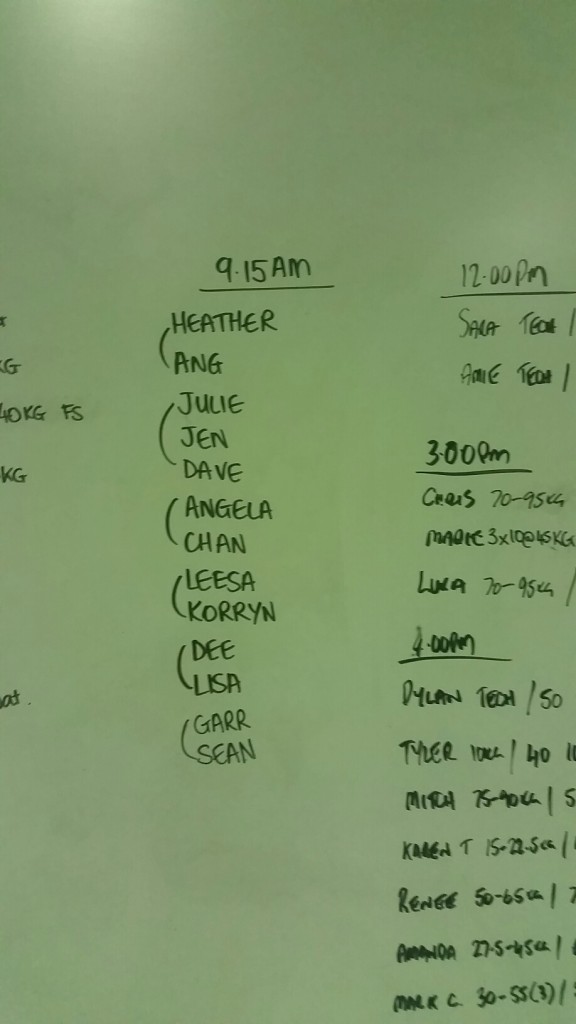 KG
40KG FS
KG
at.
9.15AM
HEATHER
ANG
JULIE
JEN
DAVE
ANGELA
CHAN
LEESA
KORRYN
DEE
LISA
GARR
SEAN
12.00pm
SARA TECH /
AMIE TECH /
3.00pm
CHRIS 70-95KG
3x10@45KG
LUKA 70-95KG /
4.00pm
DYLAN TECH / 50
TYLER 10KG / 40
MITCH 75-90KG / 5
KAREN T 15-22.5KG /
RENEE 50-65KG /
AMANDA 27.5-45KG /
MARK C 30-55(3) /